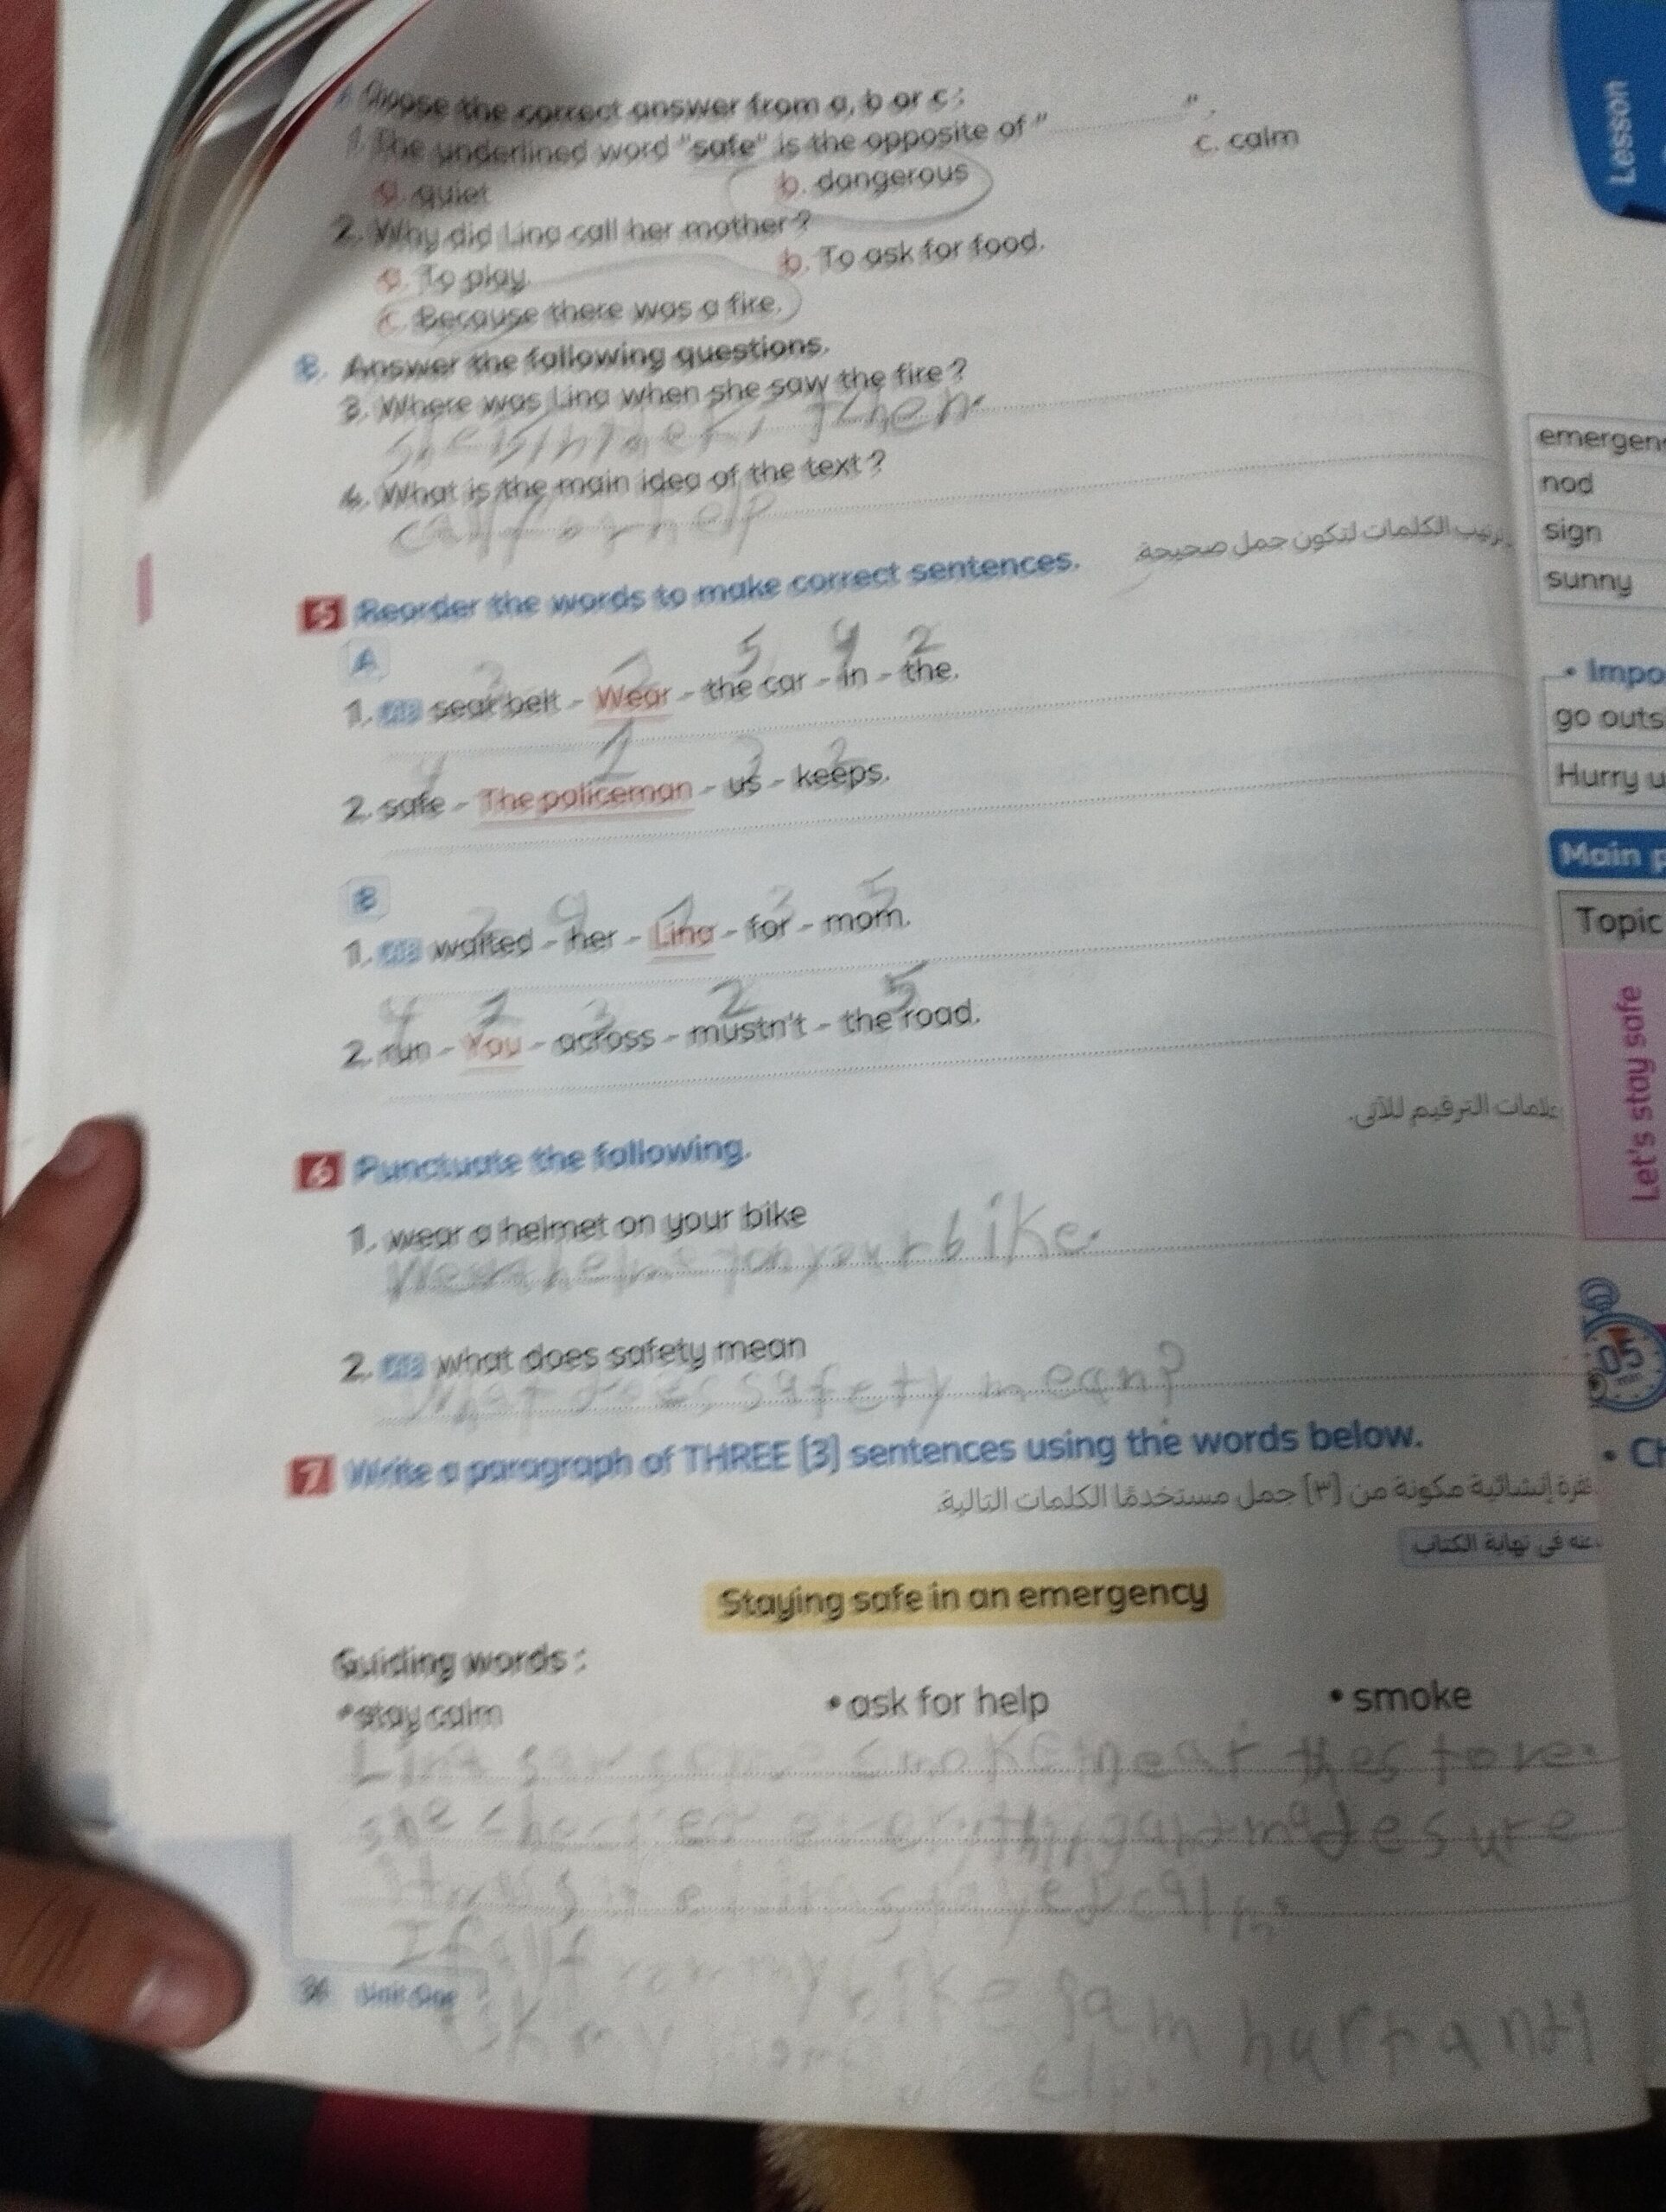 Choose the correct answer from a, b or c :
1. The underlined word "safe" is the opposite of " ............ ".
a. quiet b. dangerous c. calm
2. Why did Lina call her mother?
a. To play. b. To ask for food.
c. Because there was a fire.
B. Answer the following questions.
3. Where was Lina when she saw the fire?
4. What is the main idea of the text?
call for help
5 Reorder the words to make correct sentences.
ترتيب الكلمات لتكون جمل صحيحة.
A
5 4 2
1. seat belt - Wear - the car - in - the.
4 1 3 2
2. safe - The policeman - us - keeps.
B
2 4 1 3 5
1. waited - her - Lina - for - mom.
4 1 3 2 5
2. run - You - across - mustn't - the road.
6 Punctuate the following.
علامات الترقيم للآتى.
1. wear a helmet on your bike
Wear a helmet on your bike.
2. what does safety mean
What does safety mean?
7 Write a paragraph of THREE (3) sentences using the words below.
إنشائية مكونة من (٣) جمل مستخدمًا الكلمات التالية.
فى نهاية الكتاب
Staying safe in an emergency
Guiding words :
• stay calm • ask for help • smoke
Lina saw some smoke near the store.
she and made sure
stayed calm.
If my bike I am hurt and I
my
34 Unit One
Lesson
nod
sign
sunny
Hurry
Main
Topic
Let's stay safe
05